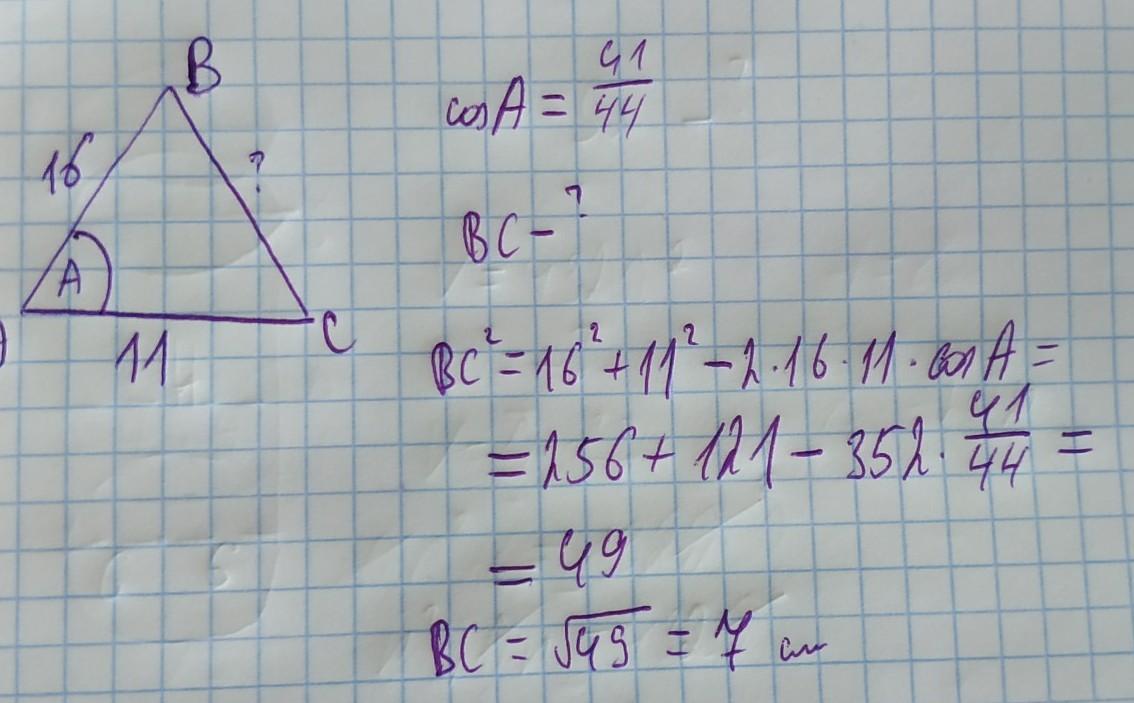 B
16
?
A
11
C
cosA = 41/44
BC - ?
BC² = 16² + 11² - 2·16·11·cosA =
= 256 + 121 - 352· 41/44 =
= 49
BC = √49 = 7 см